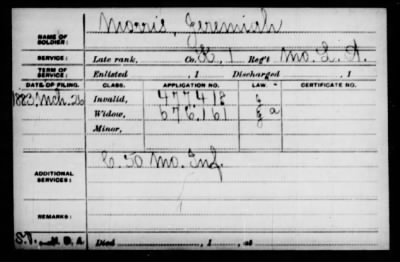 Morris, Jeremiah
NAME OF SOLDIER:
SERVICE: Late rank, Co. K, 1 Reg't Mo. L. A.
TERM OF SERVICE: Enlisted , 1 Discharged , 1
DATE OF FILING. CLASS. APPLICATION NO. LAW. CERTIFICATE NO.
1883, Mch. 26 Invalid, 477418
Widow, 676,161
Minor,
C. 50 Mo. Inf.
ADDITIONAL SERVICES:
REMARKS:
Died , 1 , at